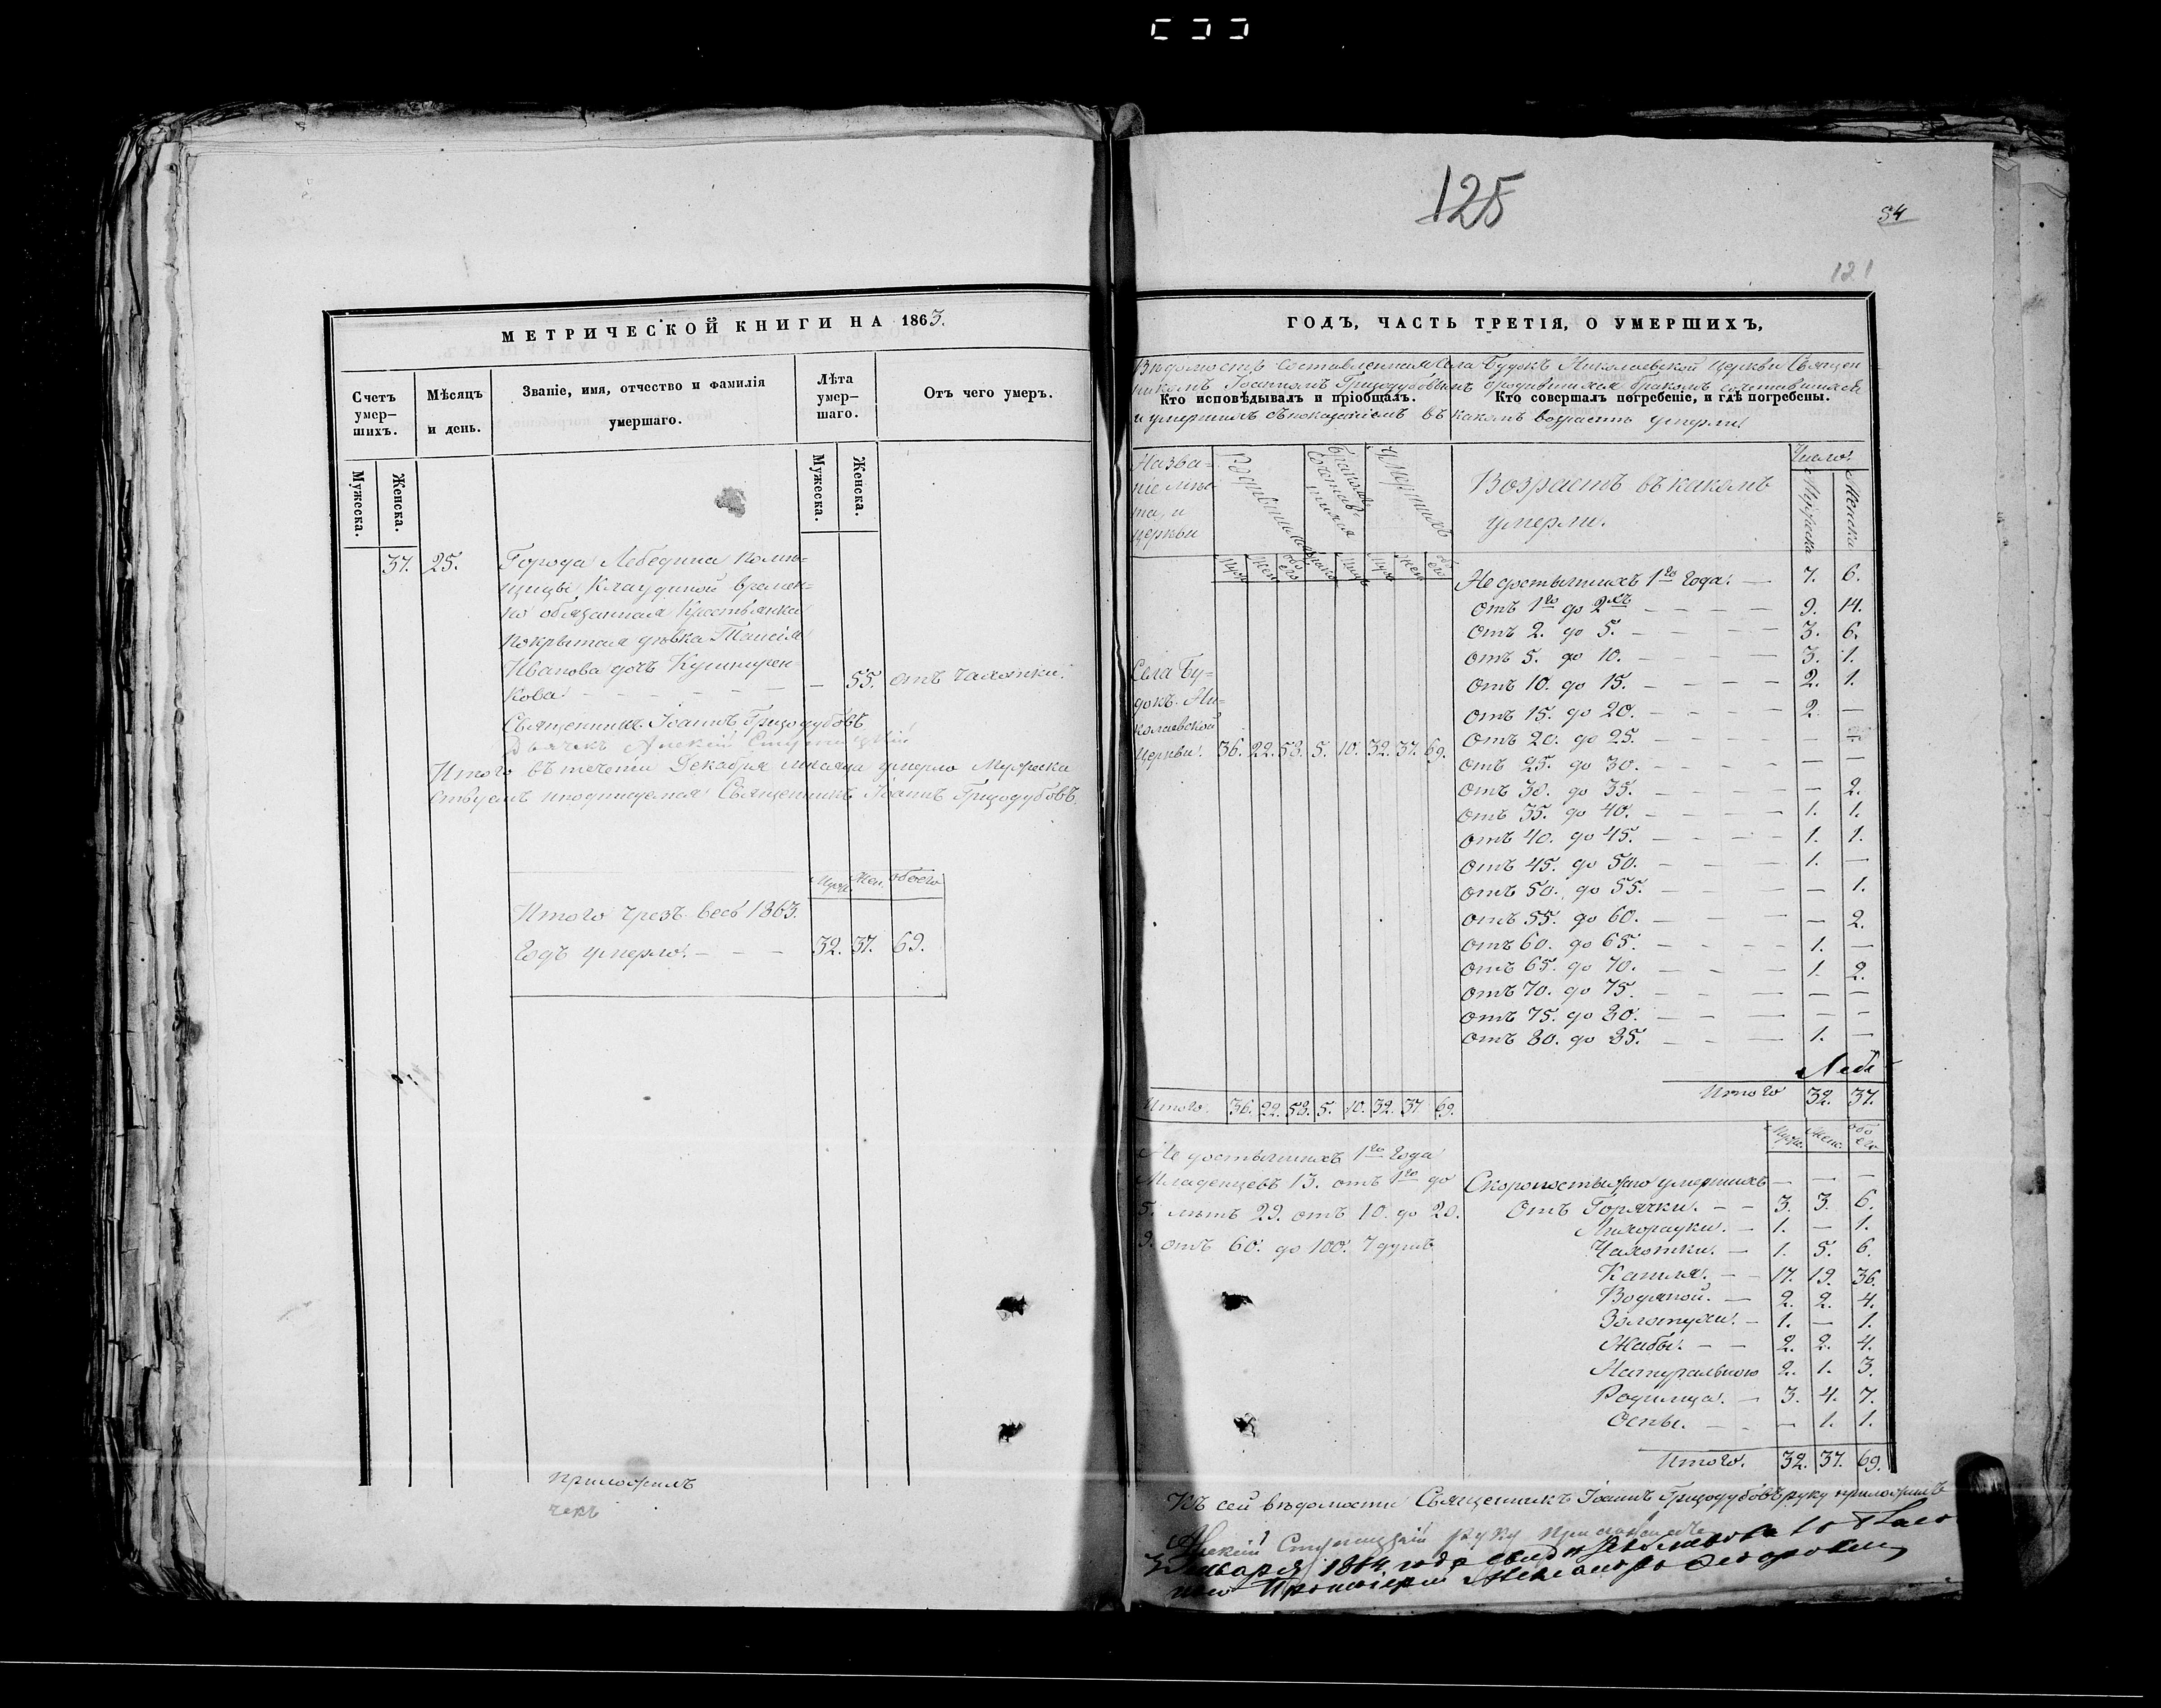 125
54
121
МЕТРИЧЕСКОЙ КНИГИ НА 1863.
Счетъ умер-шихъ.
Мѣсяцъ и день.
Званіе, имя, отчество и фамилія умершаго.
Лѣта умер-шаго.
Отъ чего умеръ.
Мужеска.
Женска.
Мужеска.
Женска.
37. 25. Города Лебедина
обязанная Крестьянка
дѣвка Таисія
Иванова дочь
кова. — 55. отъ чахотки.
Священникъ Іоаннъ Гризодубовъ
Дьячекъ Алексій Ступницкій
Итого въ Декабрѣ мѣсяцѣ умерло Мужеска
подписуемся: Священникъ Іоаннъ Гризодубовъ
Муж. Жен. обоего
Итого чрезъ весь 1863.
Годъ умерло. — — — 32. 37. 69.
приложилъ
чекъ
ГОДЪ, ЧАСТЬ ТРЕТІЯ, О УМЕРШИХЪ,
Вѣдомость составленная Села Будокъ Николаевской Церкви Священ-
никомъ Іоанномъ Гризодубовымъ
Кто исповѣдывалъ и пріобщалъ.
Кто совершалъ погребеніе, и гдѣ погребены.
и умершихъ съ показаніемъ въ какомъ возрастѣ умерли.
Назва-
ніе мѣс-
та, и
церкви
Умершихъ
Возрастъ въ какомъ
умерли.
Число.
Мужеска
Женска
Не достигшихъ 1го Года. — 7. 6.
Отъ 1го до 2хъ — — — — 9. 14.
Отъ 2. до 5. — — — — 3. 6.
Отъ 5. до 10. — — — — 3. 1.
Отъ 10. до 15. — — — — 2. 1.
Отъ 15. до 20. — — — — 2. —
Отъ 20. до 25. — — — — —
Отъ 25. до 30. — — — — — —
Отъ 30. до 35. — — — — — 2.
Отъ 35. до 40. — — — — 1. 1.
Отъ 40. до 45. — — — — 1. 1.
Отъ 45. до 50. — — — 1. —
Отъ 50. до 55. — — — — 1.
Отъ 55. до 60. — — — — 2.
Отъ 60. до 65. — — — — 1. —
Отъ 65. до 70. — — — 1. 2.
Отъ 70. до 75. — — — — —
Отъ 75. до 80. — — — — —
Отъ 80. до 85. — — — 1. —
Села Бу-
докъ Ни-
колаевской
Церкви. 36. 22. 58. 5. 10. 32. 37. 69.
Лебе
Итого 32. 37.
Итого. 36. 22. 58. 5. 10. 32. 37 69.
Не достигшихъ 1го Года
Младенцевъ 13. отъ 1го до
5. лѣтъ 29. отъ 10. до 20.
9. отъ 60. до 100. 7 душъ
Муж. Жен. обо его
Скоропостижно умершихъ — — —
Отъ Горячки. — — 3. 3. 6.
Лихорадки. — 1. — 1.
Чахотки. — 1. 5. 6.
Кашля. — — 17. 19. 36.
Водяной. — 2. 2. 4.
Золотухи. — 1. — 1.
Жабы. — — 2. 2. 4.
Натурально 2. 1. 3.
Родимца. — 3. 4. 7.
Оспы. — — 1. 1.
Итого. 32. 37. 69.
Къ сей вѣдомости Священникъ Іоаннъ Гризодубовъ руку приложилъ
Алексій Ступницкій руку приложилъ
Января 1864 года
Протоіерей Александръ